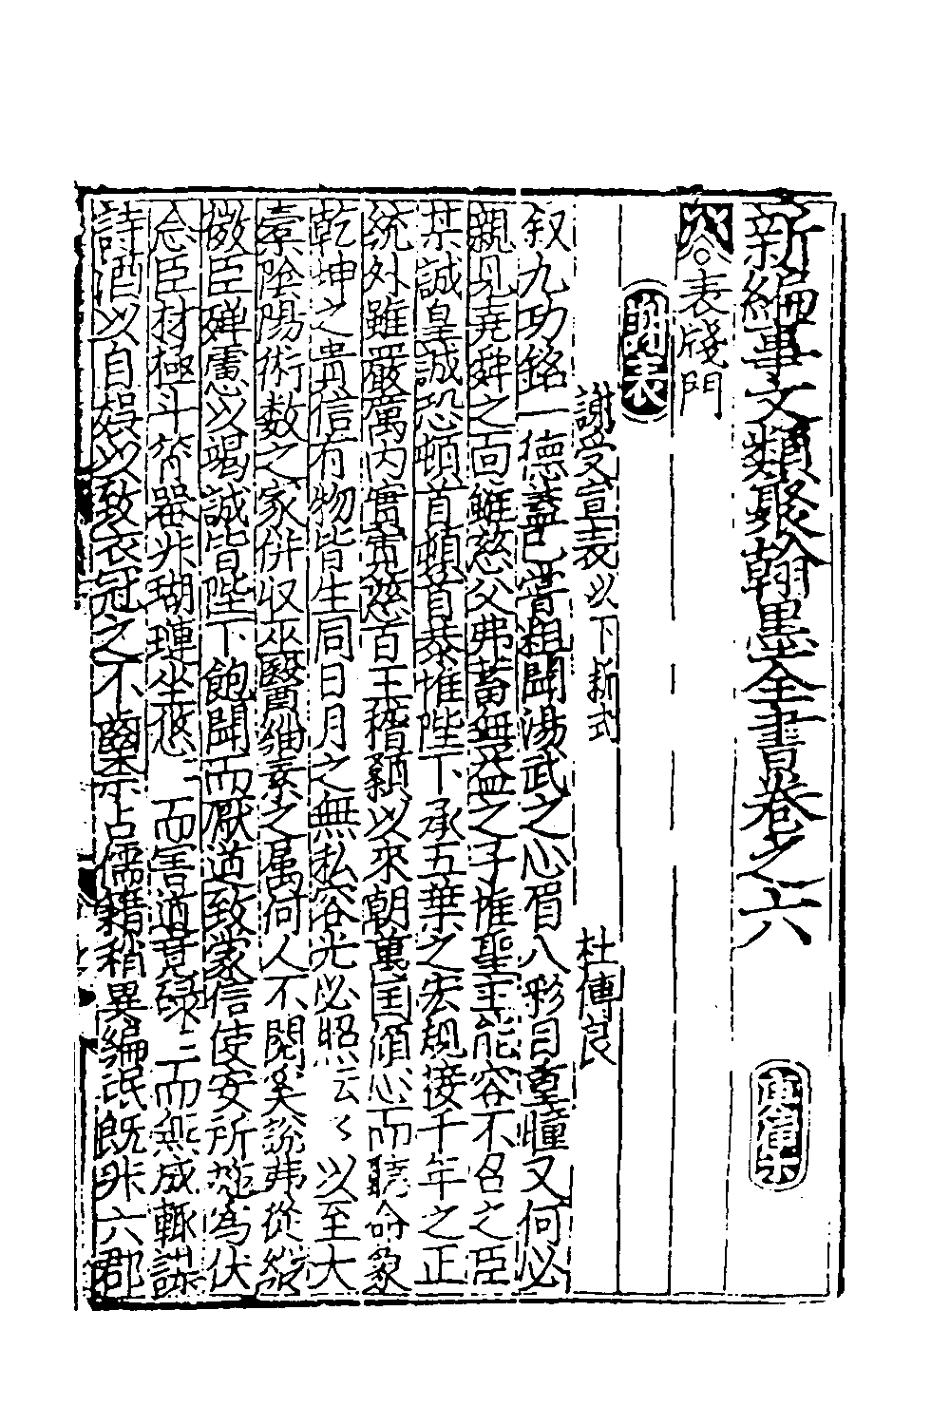 新編事文類聚翰墨全書卷之六 庚集
公〇表牋門
謝表
謝受宣表以下新式 杜傅良
叙九功銘一德蓋已嘗粗聞湯武之心眉八彩目重瞳又何必
親見堯舜之面雖慈父弗蓄無益之子惟聖主能容不召之臣
某誠皇誠恐頓首頓首恭惟陛下承五葉之宏規接千年之正
統外雖嚴厲内實寬慈百王稽顙以來朝萬国傾心而聽命象
乾坤之貴信有物皆生同日月之無私容光必照云〻以至大
橐陰陽術數之家併収巫醫細素之属何人不閱奚說弗從縱
微臣殫慮以竭誠皆陛下飽聞而厭道致蒙信使安所施為伏
念臣材極斗筲器非瑚璉坐悠〻而害道竟碌〻而無成輒謀
詩酒以自娱以致衣冠之不齒忝占儒籍稍異編氓既非六郡